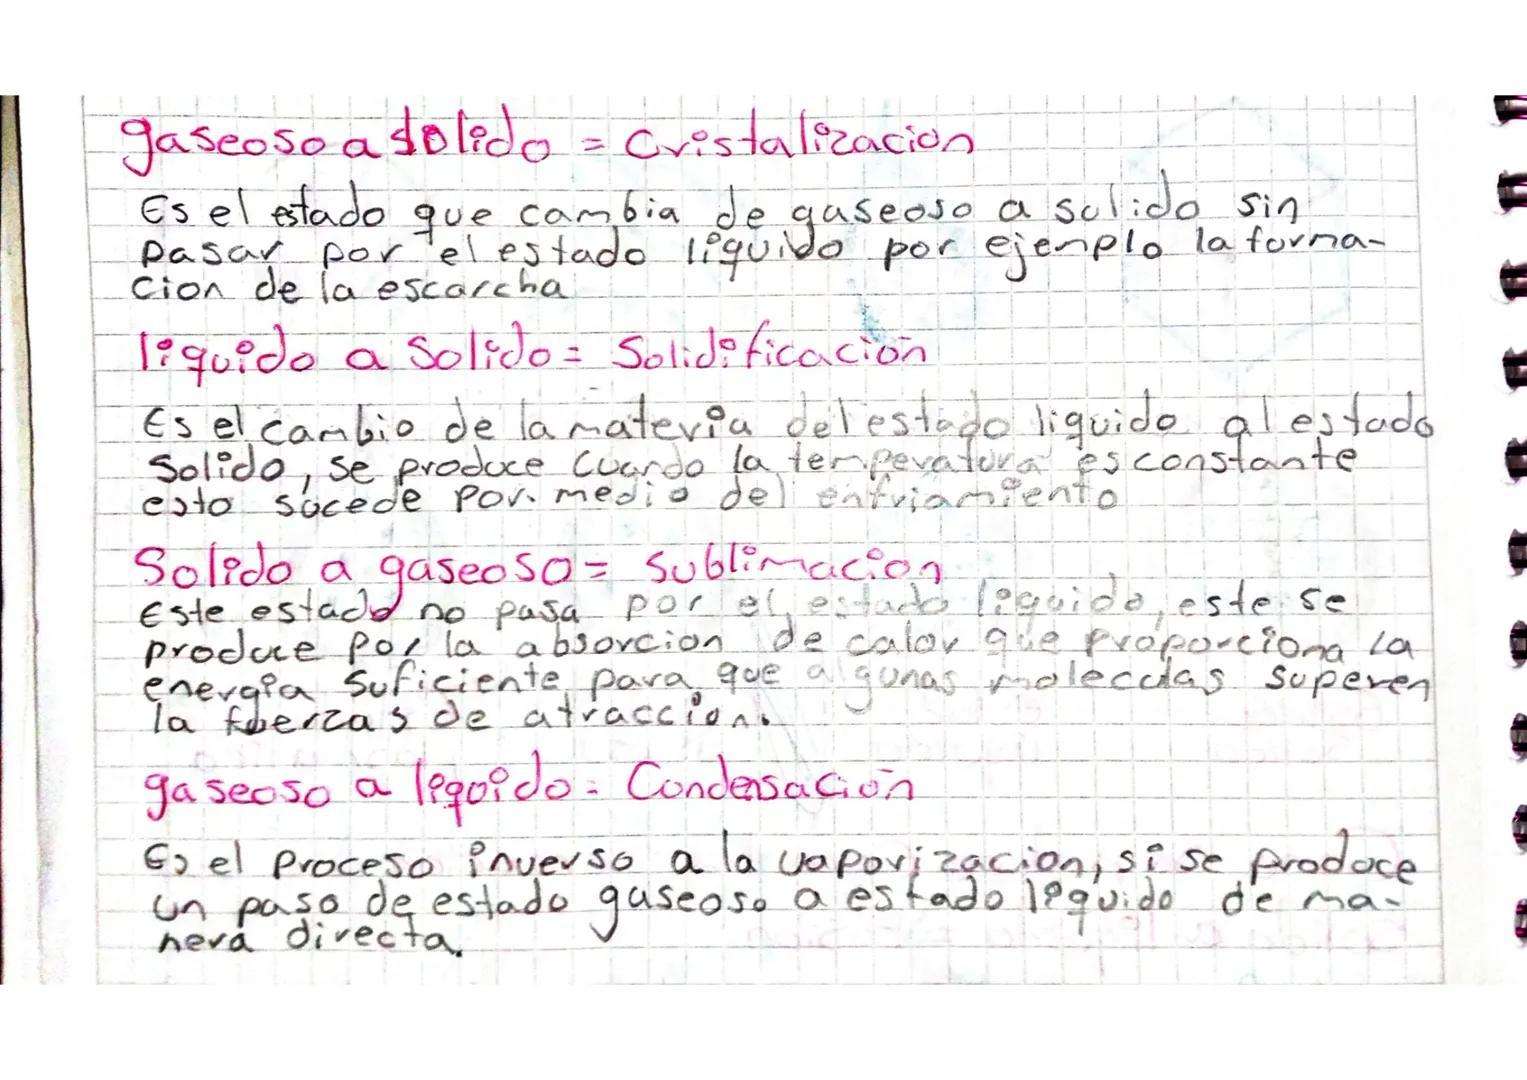 gaseoso a solido = Cristalizacion
Es el estado que cambia de gaseoso a solido sin
pasar por el estado liquido por ejemplo la forma-
cion de la escarcha
liquido a Solido = Solidificación
Es el cambio de la materia del estado liquido al estado
Solido, se produce cuando la temperatura es constante
esto sucede por medio del enfriamiento
Solido a gaseoso = Sublimacion
Este estado no pasa por el estado liquido, este se
produce por la absorcion de calor que proporciona la
energia suficiente para que algunas moleculas superen
la fuerzas de atraccion.
gaseoso a liquido = Condensación
Es el proceso inverso a la vaporizacion, si se produce
un paso de estado gaseoso a estado liquido de ma-
nera directa.